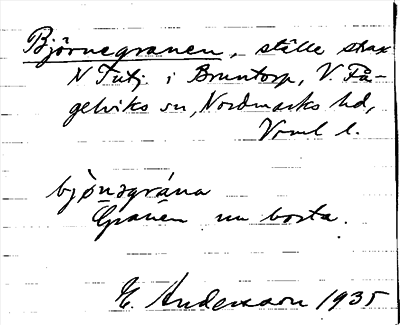 Björnegranen, ställe strax
N Tutj. i Bruntorp, V. Få-
gelviks sn, Nordmarks hd,
Vrml l.
bjönəgrána
Granen nu borta.
E. Andersson 1935